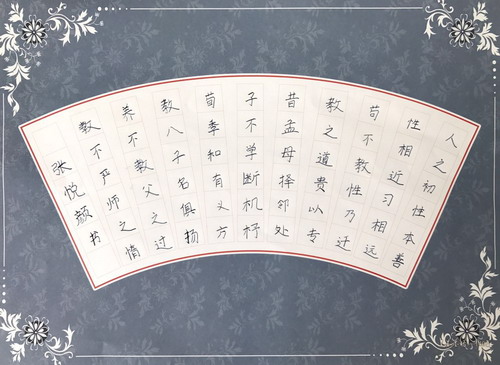 人之初性本善
性相近习相远
苟不教性乃迁
教之道贵以专
昔孟母择邻处
子不学断机杼
荀季和有义方
教八子名俱扬
养不教父之过
教不严师之惰
张悦颜书